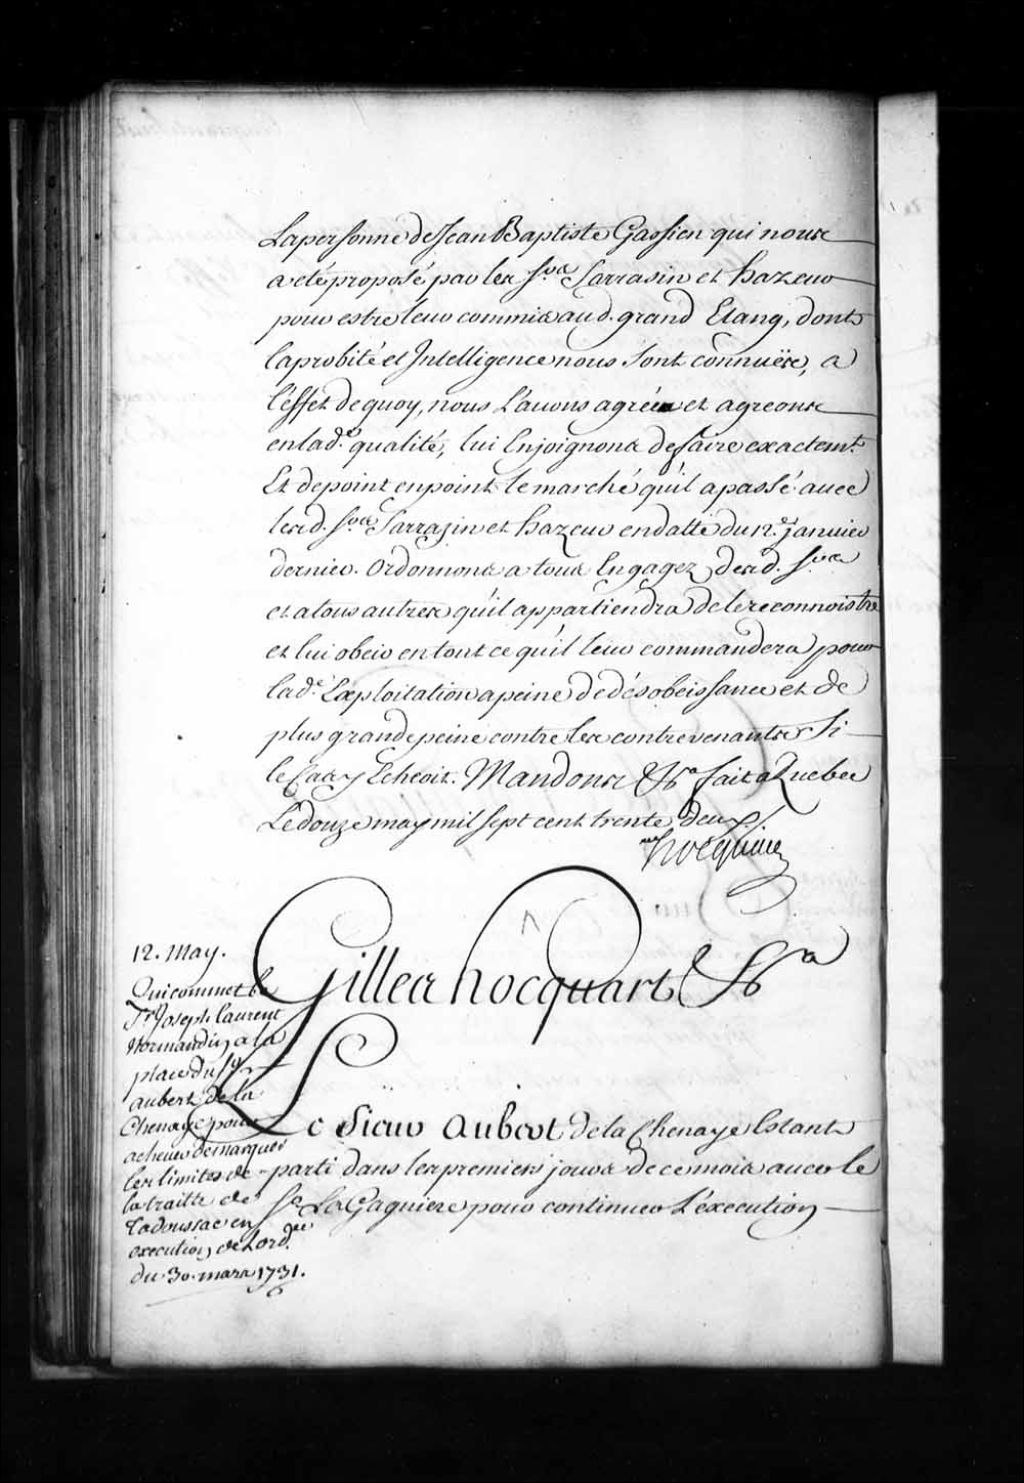 La personne de Jean Baptiste Gassien qui nous
a eté proposé par les Srs Sarrasin et hazeur
pour estre leur commis aud. grand Etang, dont
la probité et Intelligence nous sont connuës, a
l'effet de quoy, nous L'auons agréé et agreons
en lad.e qualité, lui Enjoignons de faire exactemt.
Et de point en point le marché qu'il a passé auec
lesd. Srs Sarrasin et hazeur en datte du 12.e januier
dernier. Ordonnons a tous Engagez desd. Srs
et a tous autres qu'il appartiendra de le reconnoistre
et lui obeir en tout ce qu'il leur commandera pour
lad.e Exploitation a peine de désobeissance et de
plus grande peine contre les contrevenants si
le Cas y Echeoit. Mandons &a fait a Quebec
Le douze may mil sept cent trente deux./
hocquart
Gilles hocquart &a
12. May.
Qui commet le
Sr. Joseph Laurent
Normandin a la
place du Sr
aubert de la
Chenaye pour
acheuer de marquer
les limites de
la traitte de
Tadoussac en
execution de Lord.ce
du 30. mars 1731.
Le Sieur Aubert de la Chenaye Estant
parti dans les premiers jours de ce mois auec le
Sr. La Gaguiere pour continuer L'éxecution